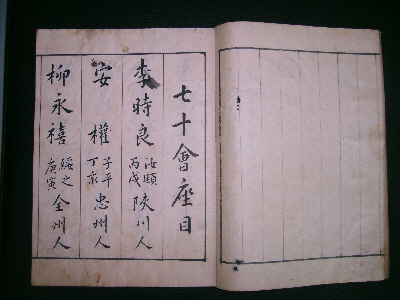 七十會座目
李時良 汝頤 丙戌 陜川人
安權 子平 丁亥 忠州人
柳永禧 綏之 庚寅 全州人